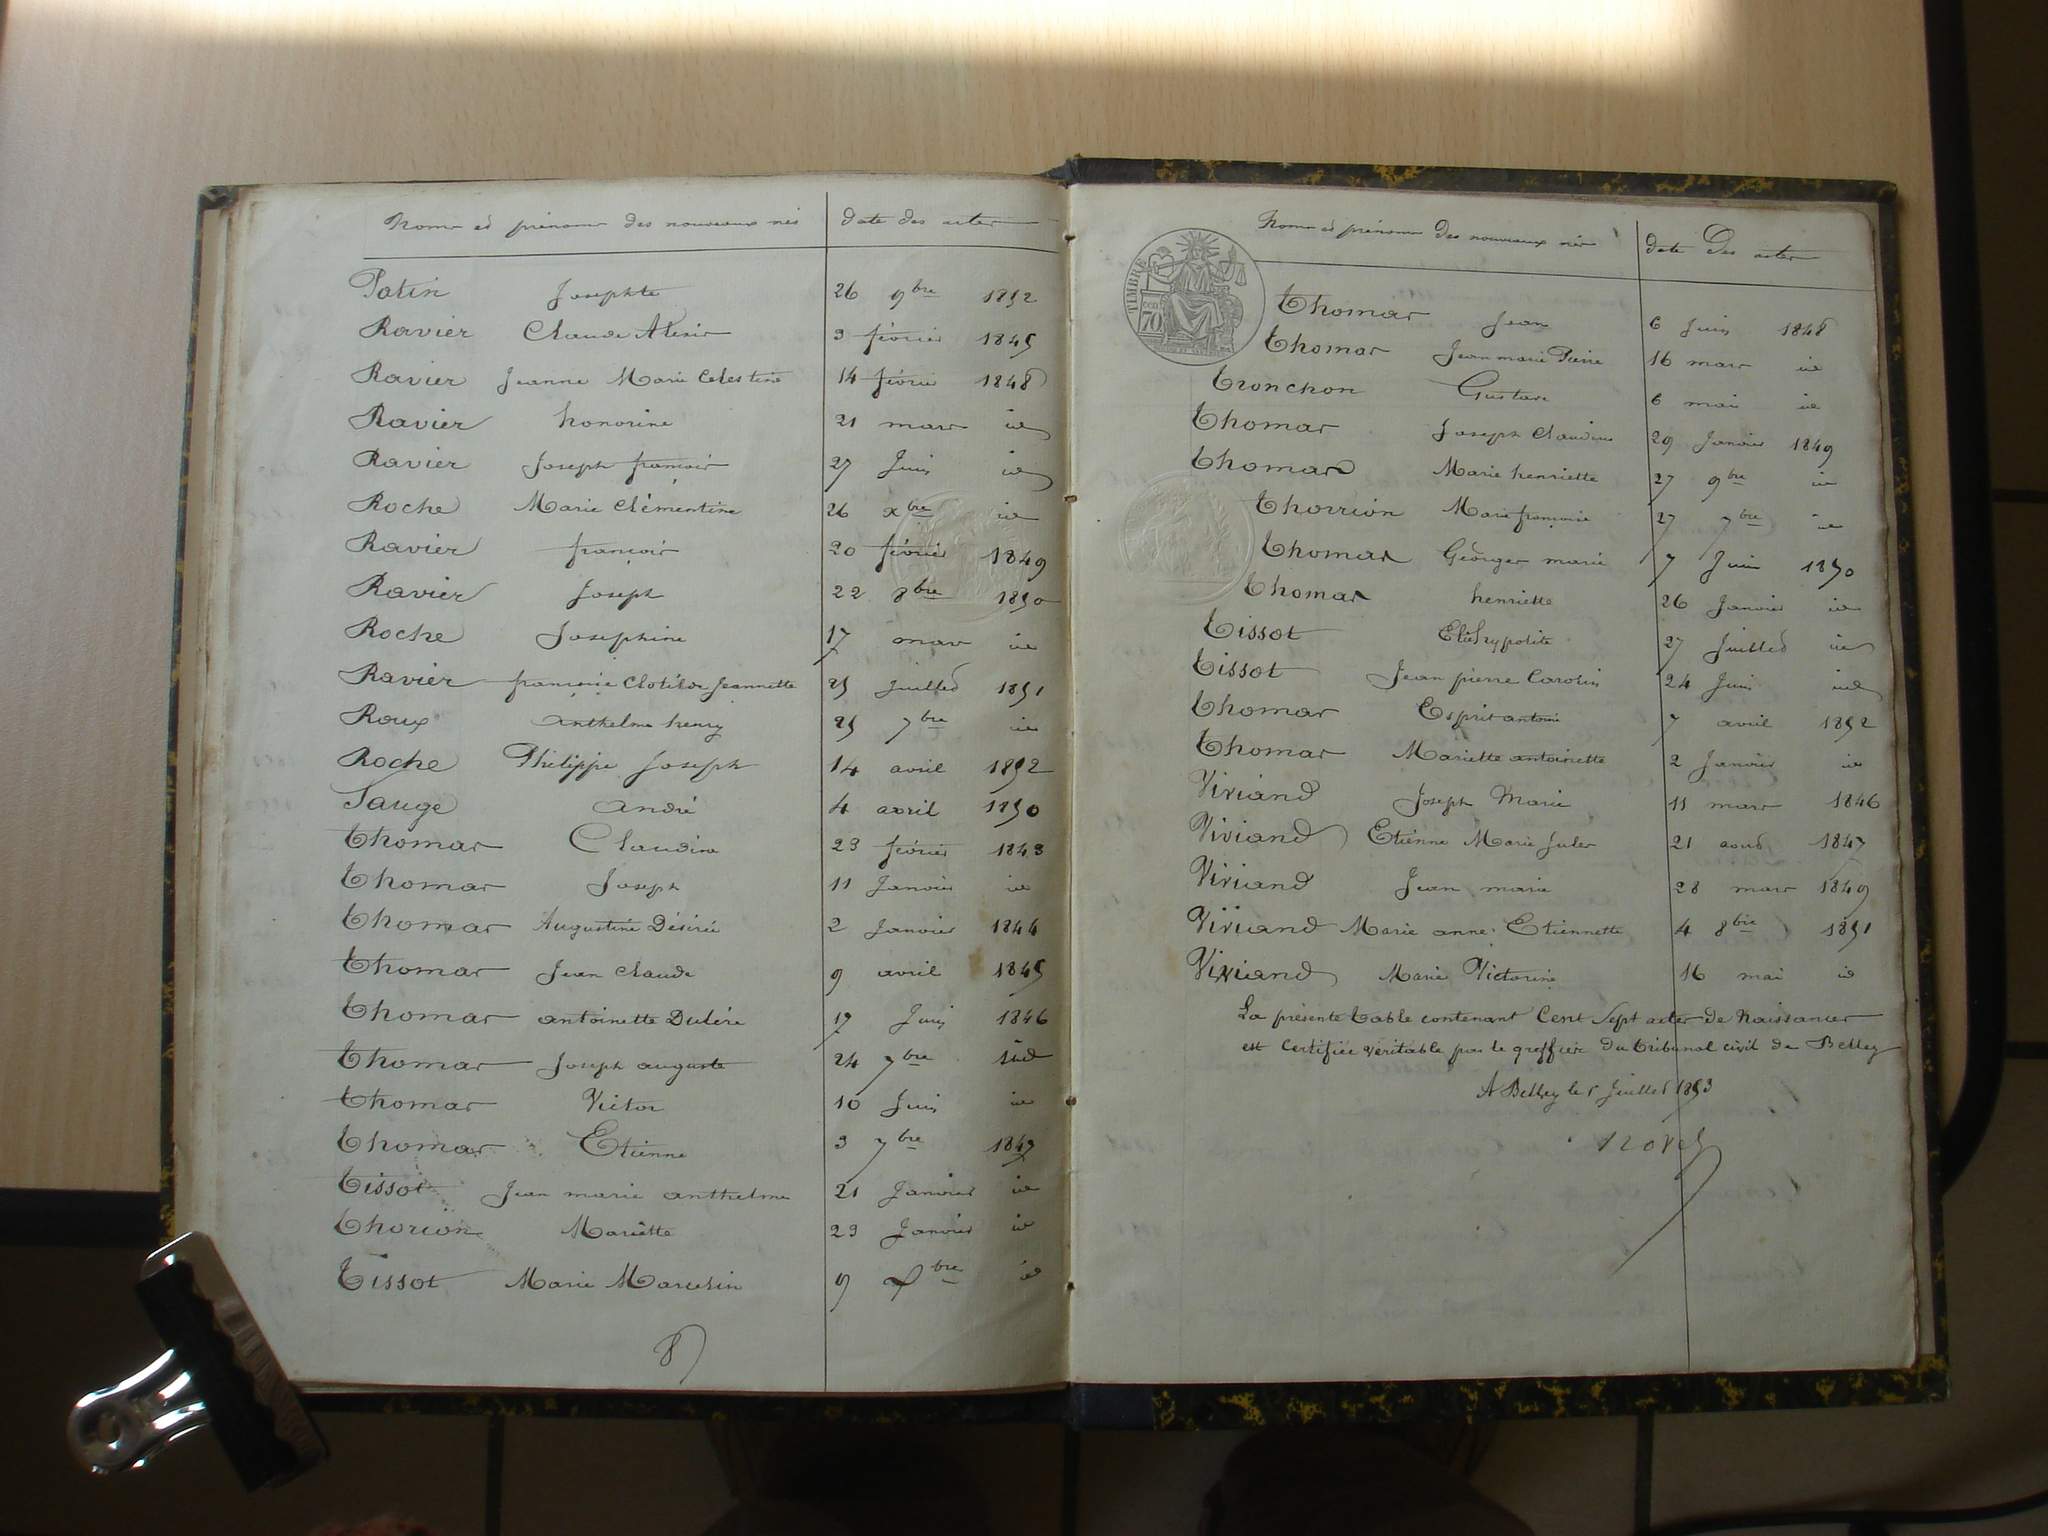 Noms et prénoms des nouveaux nés date des actes
Patin Josephte 26 9bre 1852
Ravier Claude Alexis 3 février 1845
Ravier Jeanne Marie Celestine 14 février 1848
Ravier honorine 21 mars id
Ravier Joseph françois 27 Juin id
Roche Marie Clémentine 26 xbre id
Ravier françois 20 février 1849
Ravier Joseph 22 8bre 1850
Roche Josephine 17 mars id
Ravier françoise Clotilde Jeannette 25 Juillet 1851
Roux anthelme henry 25 7bre id
Roche Philippe Joseph 14 avril 1852
Sauge andré 4 avril 1850
Thomas Claudine 23 février 1843
Thomas Joseph 11 Janvier id
Thomas Augustine Désirée 2 Janvier 1844
Thomas Jean Claude 9 avril 1845
Thomas antoinette 17 Juin 1846
Thomas Joseph auguste 24 7bre
Thomas Victor 10 Juin id
Thomas Etienne 3 7bre 1847
Tissot Jean marie anthelme 21 Janvier id
Thorion Mariette 23 Janvier id
Tissot Marie Marcelin 9 xbre id
8
Noms et prénoms des nouveaux nés date Des actes
TIMBRE
70 cen
Thomas Jean 6 Juin 1848
Thomas Jean marie Pierre 16 mars id
Tronchon Gustave 6 mai id
Thomas Joseph Claudius 29 Janvier 1849
Thomas Marie henriette 27 9bre id
Thorrion Marie françoise 27 7bre id
Thomas Georges marie 7 Juin 1850
Thomas henriette 26 Janvier id
Tissot hypolite 27 Juillet id
Tissot Jean pierre Carolin 24 Juin id
Thomas Esprit antoine 7 avril 1852
Thomas Mariette antoinette 2 Janvier id
Viviand Joseph Marie 11 mars 1846
Viviand Etienne Marie Jules 21 aout 1847
Viviand Jean marie 28 mars 1849
Viviand Marie anne Etiennette 4 8bre 1851
Viviand Marie Victorine 16 mai id
La présente table contenant Cent Sept actes de Naissances
est Certifiée véritable par le greffier du tribunal civil de Belley
A Belley le Juillet 1853